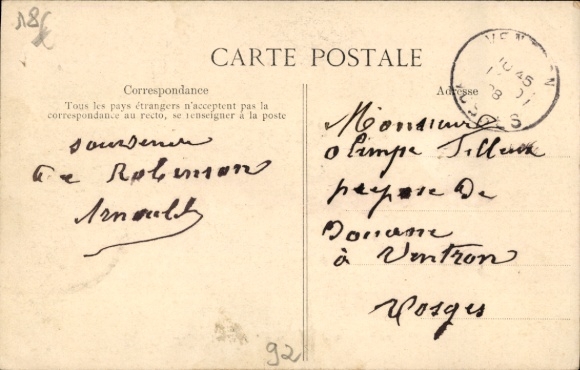 18
CARTE POSTALE
Correspondance
Tous les pays étrangers n'acceptent pas la
correspondance au recto, se renseigner à la poste
Adresse
souvenir
de Robinson
Arnould
Monsieur
olimpe
prepose de
Douane
à Ventron
Vosges
VENTRON
10 45
VOSGES
92